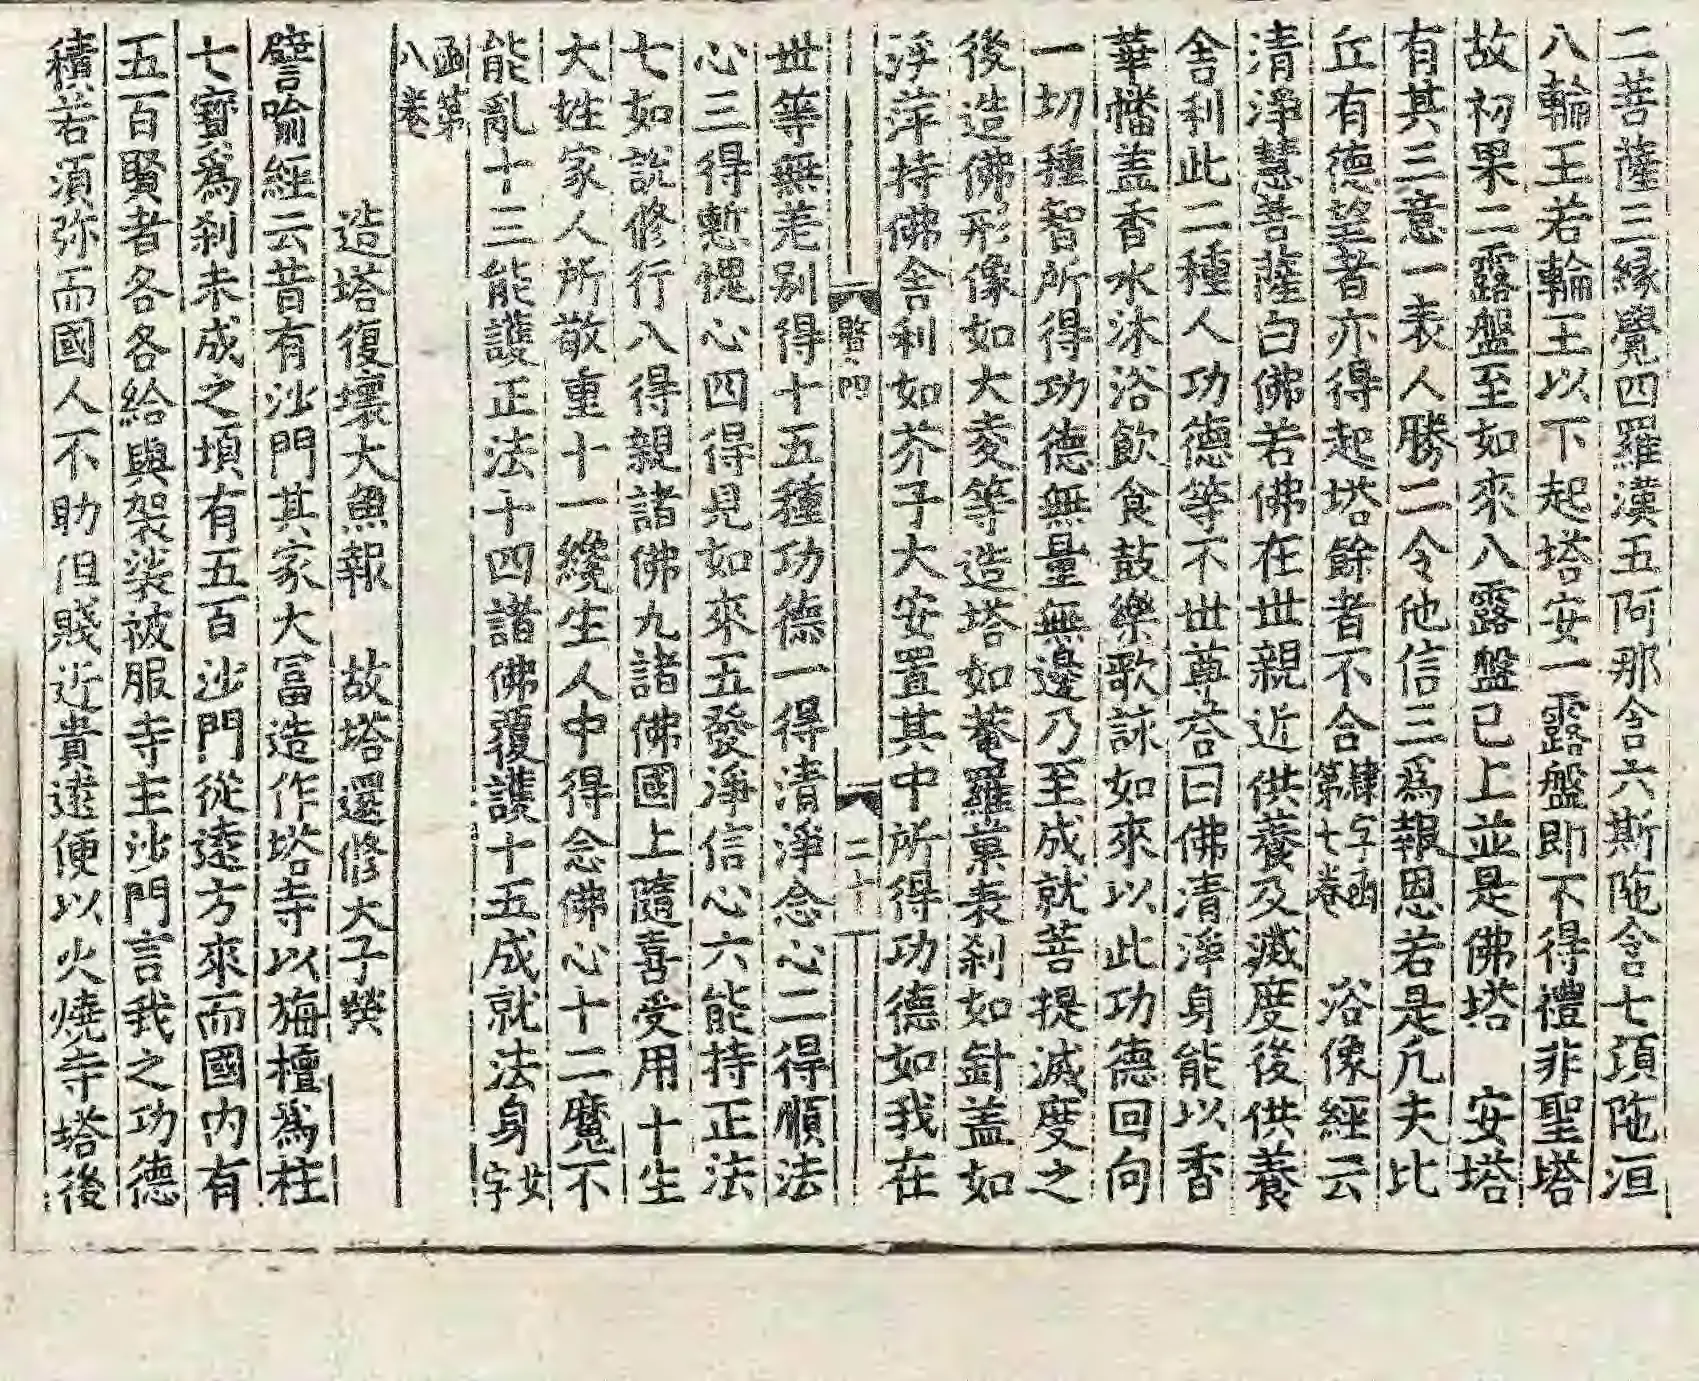 二菩薩三縁覺四羅漢五阿那含六斯陁含七湏陁洹
八輪王若輪王以下起塔安一露盤即不得禮非聖塔
故初果二露盤至如來八露盤已上並是佛塔　安塔
有其三意一表人勝二令他信三爲報恩若是凢夫比
丘有德望者亦得起塔餘者不合肆字函第七卷　浴像經云
清淨慧菩薩白佛若佛在世親近供養及滅度後供養
舍利此二種人功德等不世尊荅曰佛清淨身能以香
華幡盖香水沐浴飲食鼓樂歌詠如來以此功德回向
一切種智所得功德無量無邊乃至成就菩提滅度之
後造佛形像如大麦等造塔如菴羅菓表刹如針盖如
浮萍持佛舍利如芥子大安置其中所得功德如我在
譬四　二十
世等無差别得十五種功德一得清淨念心二得順法
心三得慙愧心四得見如來五發淨信心六能持正法
七如說修行八得親諸佛九諸佛國上隨喜受用十生
大姓家人所敬重十一纔生人中得念佛心十二魔不
能亂十三能護正法十四諸佛覆護十五成就法身女字
函第八卷
造塔復壞大魚報　故塔還修大子㷼
譬喻經云昔有沙門其家大冨造作塔寺以栴檀爲柱
七寶爲刹未成之頃有五百沙門從逺方來而國内有
五百賢者各各給與袈裟被服寺主沙門言我之功德
積若須弥而國人不助但賤近貴逺便以火燒寺塔後